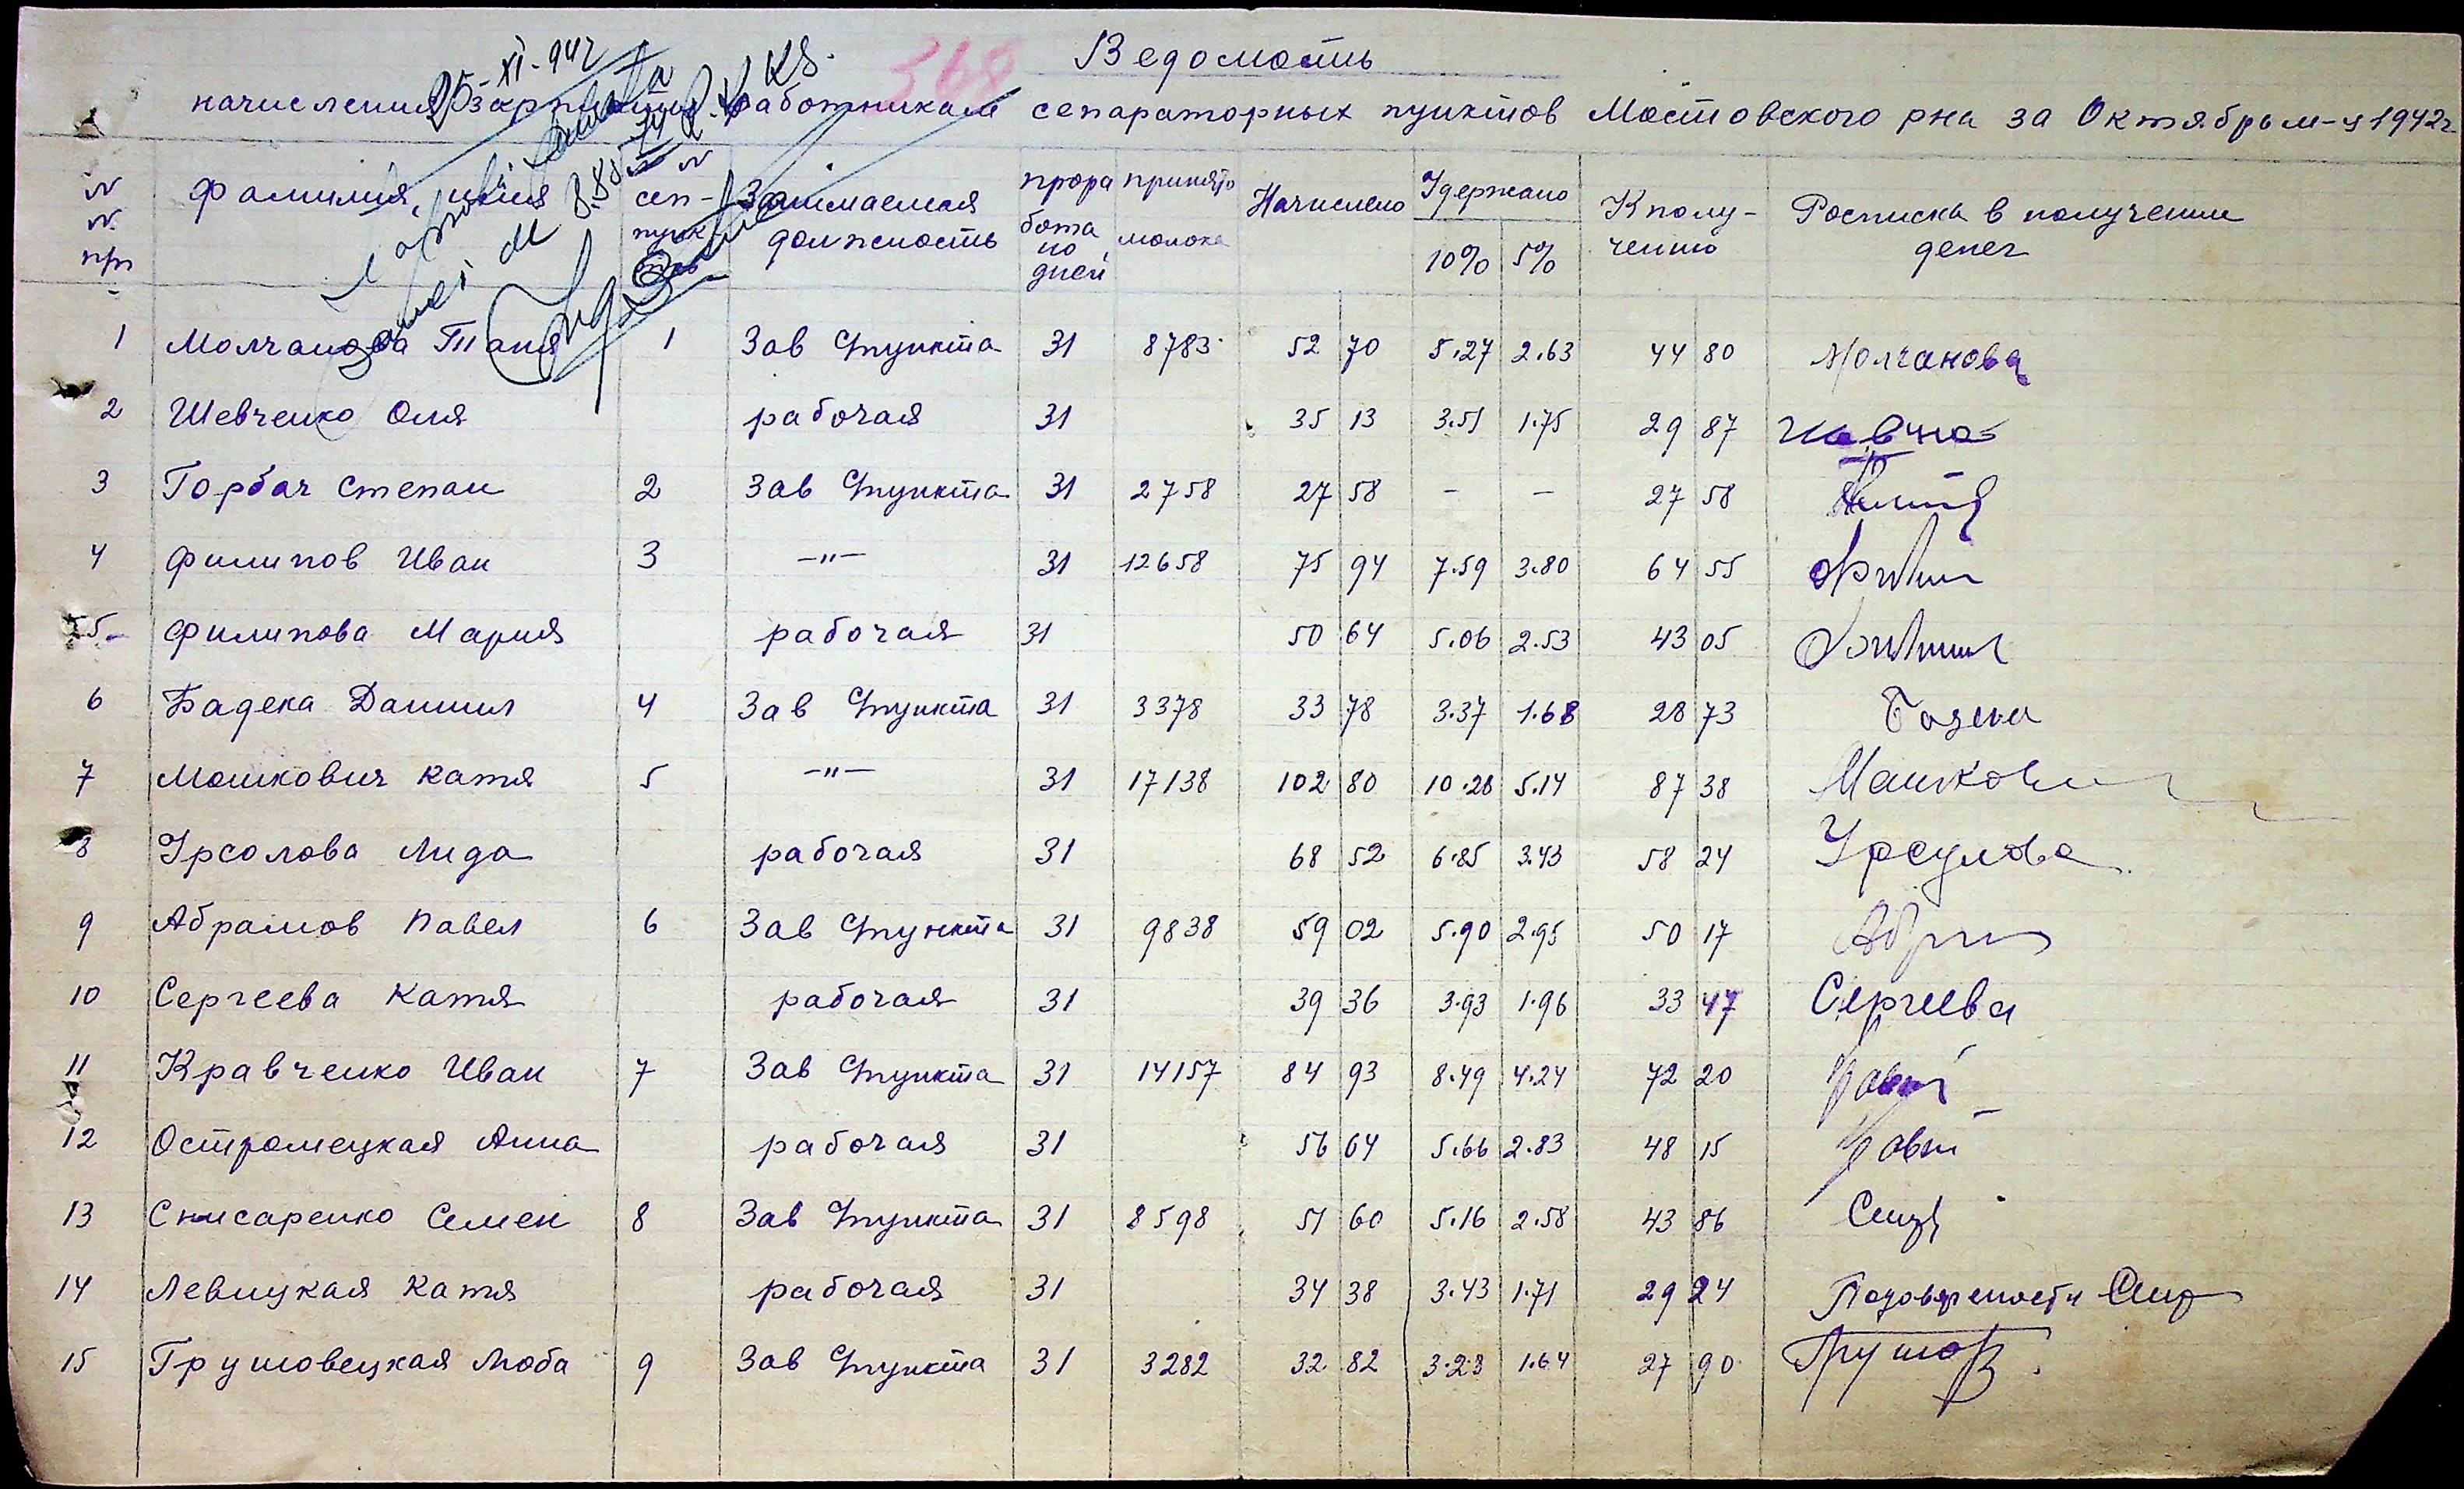 25-XI-942
368
Ведомость
начисления зарплаты работникам сепараторных пунктов Мостовского рна за Октябрь м-ц 1942г.
№ № пп Фамилия, имя № сеп-пунк Занимаемая должность прора бота но дней принято молока Начислено Удержано 10% 5% К полу-чению Росписка в получении денег
1 Молчанова Таня 1 Зав Спункта 31 8783 52 70 5.27 2.63 44 80 Молчанова
2 Шевченко Оля рабочая 31 35 13 3.51 1.75 29 87
3 Горбач Степан 2 Зав Спункта 31 2758 27 58 - - 27 58
4 Филипов Иван 3 -"- 31 12658 75 94 7.59 3.80 64 55
5 Филипова Мария рабочая 31 50 64 5.06 2.53 43 05
6 Бадека Даниил 4 Зав Спункта 31 3378 33 78 3.37 1.68 28 73
7 Машкович Катя 5 -"- 31 17138 102 80 10.28 5.14 87 38 Машкович
8 Урсолова Лида рабочая 31 68 52 6.85 3.43 58 24 Урсулова
9 Абрамов Павел 6 Зав Спункта 31 9838 59 02 5.90 2.95 50 17
10 Сергеева Катя рабочая 31 39 36 3.93 1.96 33 47 Сергеева
11 Кравченко Иван 7 Зав Спункта 31 14157 84 93 8.49 4.24 72 20
12 Остромецкая Анна рабочая 31 56 64 5.66 2.83 48 15
13 Снисаренко Семен 8 Зав Спункта 31 8598 51 60 5.16 2.58 43 86
14 Левицкая Катя рабочая 31 34 38 3.43 1.71 29 24
15 Грушовецкая Люба 9 Зав Спункта 31 3282 32 82 3.28 1.64 27 90 Грушов